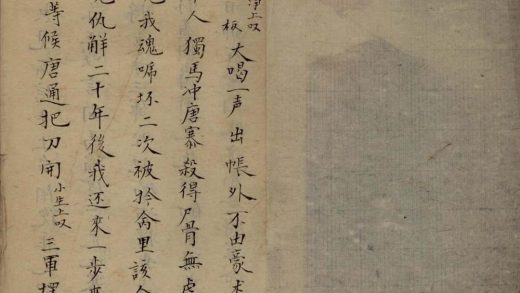 上叹板大喝一声出帳外不由豪
人獨馬冲唐寨殺得尸骨無
我魂唬坏二次被擒禽里該
仇觧二十年後我还來一步
等候唐通把刀開小生上叹三軍